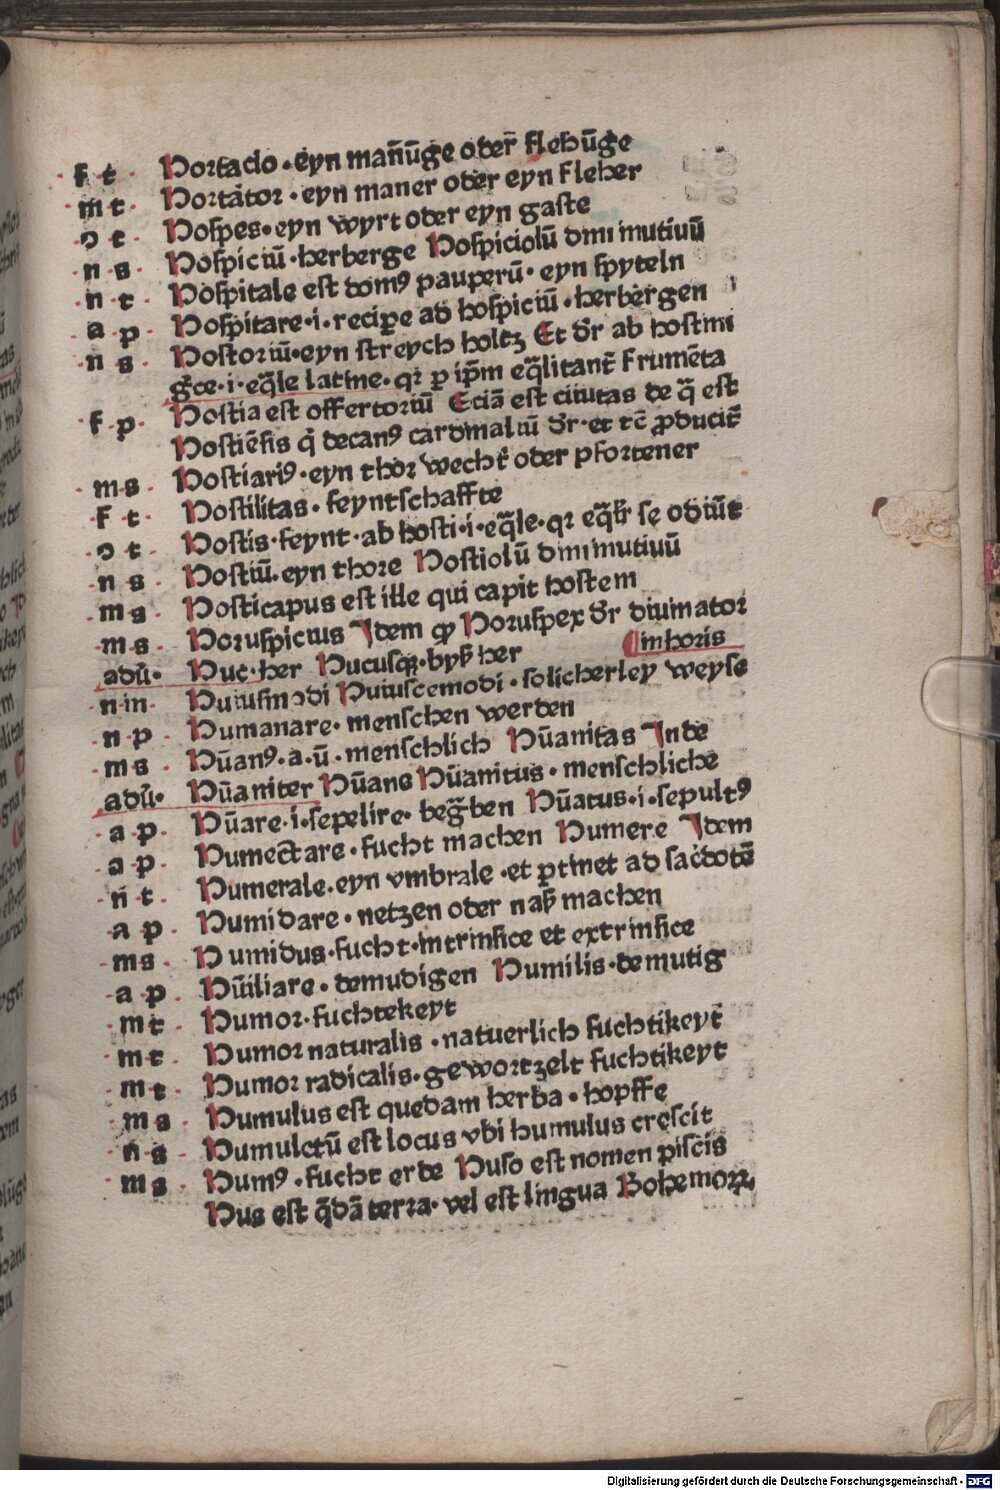 f t Hortacio · eyn manūge oder flehūge
m t Hortator · eyn maner oder eyn fleher
ɔ t Hospes · eyn wyrt oder eyn gaste
n s Hospiciū · herberge Hospiciolū diminutiuū
n t Hospitale est domꝰ pauperū · eyn spyteln
a p Hospitare · i · recipe ad hospiciū · herbergen
n s Hostoriū · eyn streych holtz Et dr̄ ab hostim
gr̄ce · i · eq̄le latine · qꝛ ꝑ ip̄m eq̄litant̄ frumēta
f p Hostia est offertoriū Eciā est ciuitas de q̄ est
Hostiēsis q̇ decanꝰ cardinaliū dr̄ · et tē ꝓducit̄
m s Hostiariꝰ · eyn thor wecht̄ oder pfortener
f t Hostilitas · feyntschaffte
ɔ t Hostis · feynt · ab hosti · i · eq̄le · qꝛ eq̄lr̄ se odiūt
n s Hostiū · eyn thore Hostiolū diminutiuū
m s Hosticapus est ille qui capit hostem
m s Horuspicius Idem ꝙ Horuspex dr̄ diuinator
adū · Huc · her Hucusqꝫ · byß her ¶ in horis
n in Huiusmodi Huiuscemodi · solicherley weyse
n p Humanare · menschen werden
m s Hūanꝰ · a · ū · menschlich Hūanitas Inde
adū · Hūaniter Hūane Hūanitus · menschliche
a p Hūare · i · sepelire · begr̄ben Hūatus · i · sepultꝰ
a p Humectare · fucht machen Humere Idem
n t Humerale · eyn vmbrale · et ꝑtinet ad sac̄dotē
a p Humidare · netzen oder naß machen
m s Humidus · fucht · intrinsice et extrinsice
a p Hūiliare · demudigen Humilis · demutig
m t Humor · fuchtekeyt
m t Humor naturalis · natuerlich fuchtikeyt
m t Humor radicalis · gewortzelt fuchtikeyt
m s Humulus est quedam herba · hopffe
n s Humulctū est locus vbi humulus crescit
m s Humꝰ · fucht erde Huso est nomen piscis
Hus est q̄dā terra · vel est lingua Bohemoꝝ
Digitalisierung gefördert durch die Deutsche Forschungsgemeinschaft - DFG